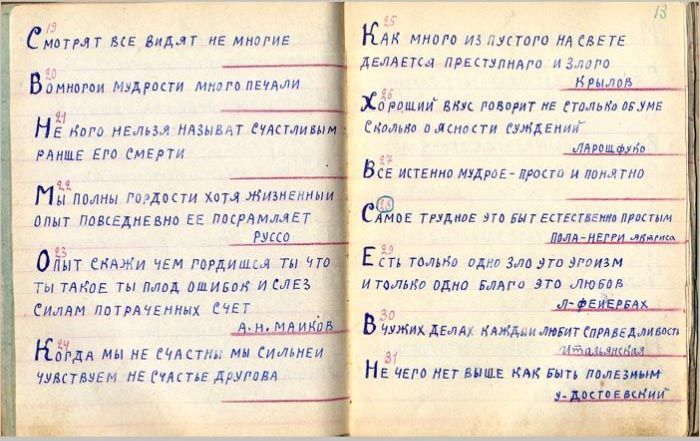 19
Смотрят все видят не многие
20
Во многои мудрости много печали
21
Не кого нельзя называт счастливым
ранше его смерти
22
Мы полны гордости хотя жизненныи
опыт повседневно ее посрамляет
Руссо
23
Опыт скажи чем гордишся ты что
ты такое ты плод ошибок и слез
силам потраченных счет
А.Н. Маиков
24
Когда мы не счастны мы сильнеи
чувствуем не счастье другова
13
25
Как много из пустого на свете
делается преступнаго и злого
Крылов
26
Хороший вкус говорит не столько об уме
сколько о ясности суждений
Ларошфуко
27
Все истенно мудрое - просто и понятно
28
Самое трудное это быт естественно простым
Пола-Негри актриса
29
Есть только одно зло это эгоизм
и только одно благо это любов
Л-Фейербах
30
В чужих делах каждыи любит справедливость
Итальянская
31
Не чего нет выше как быть полезным
у-Достоевский